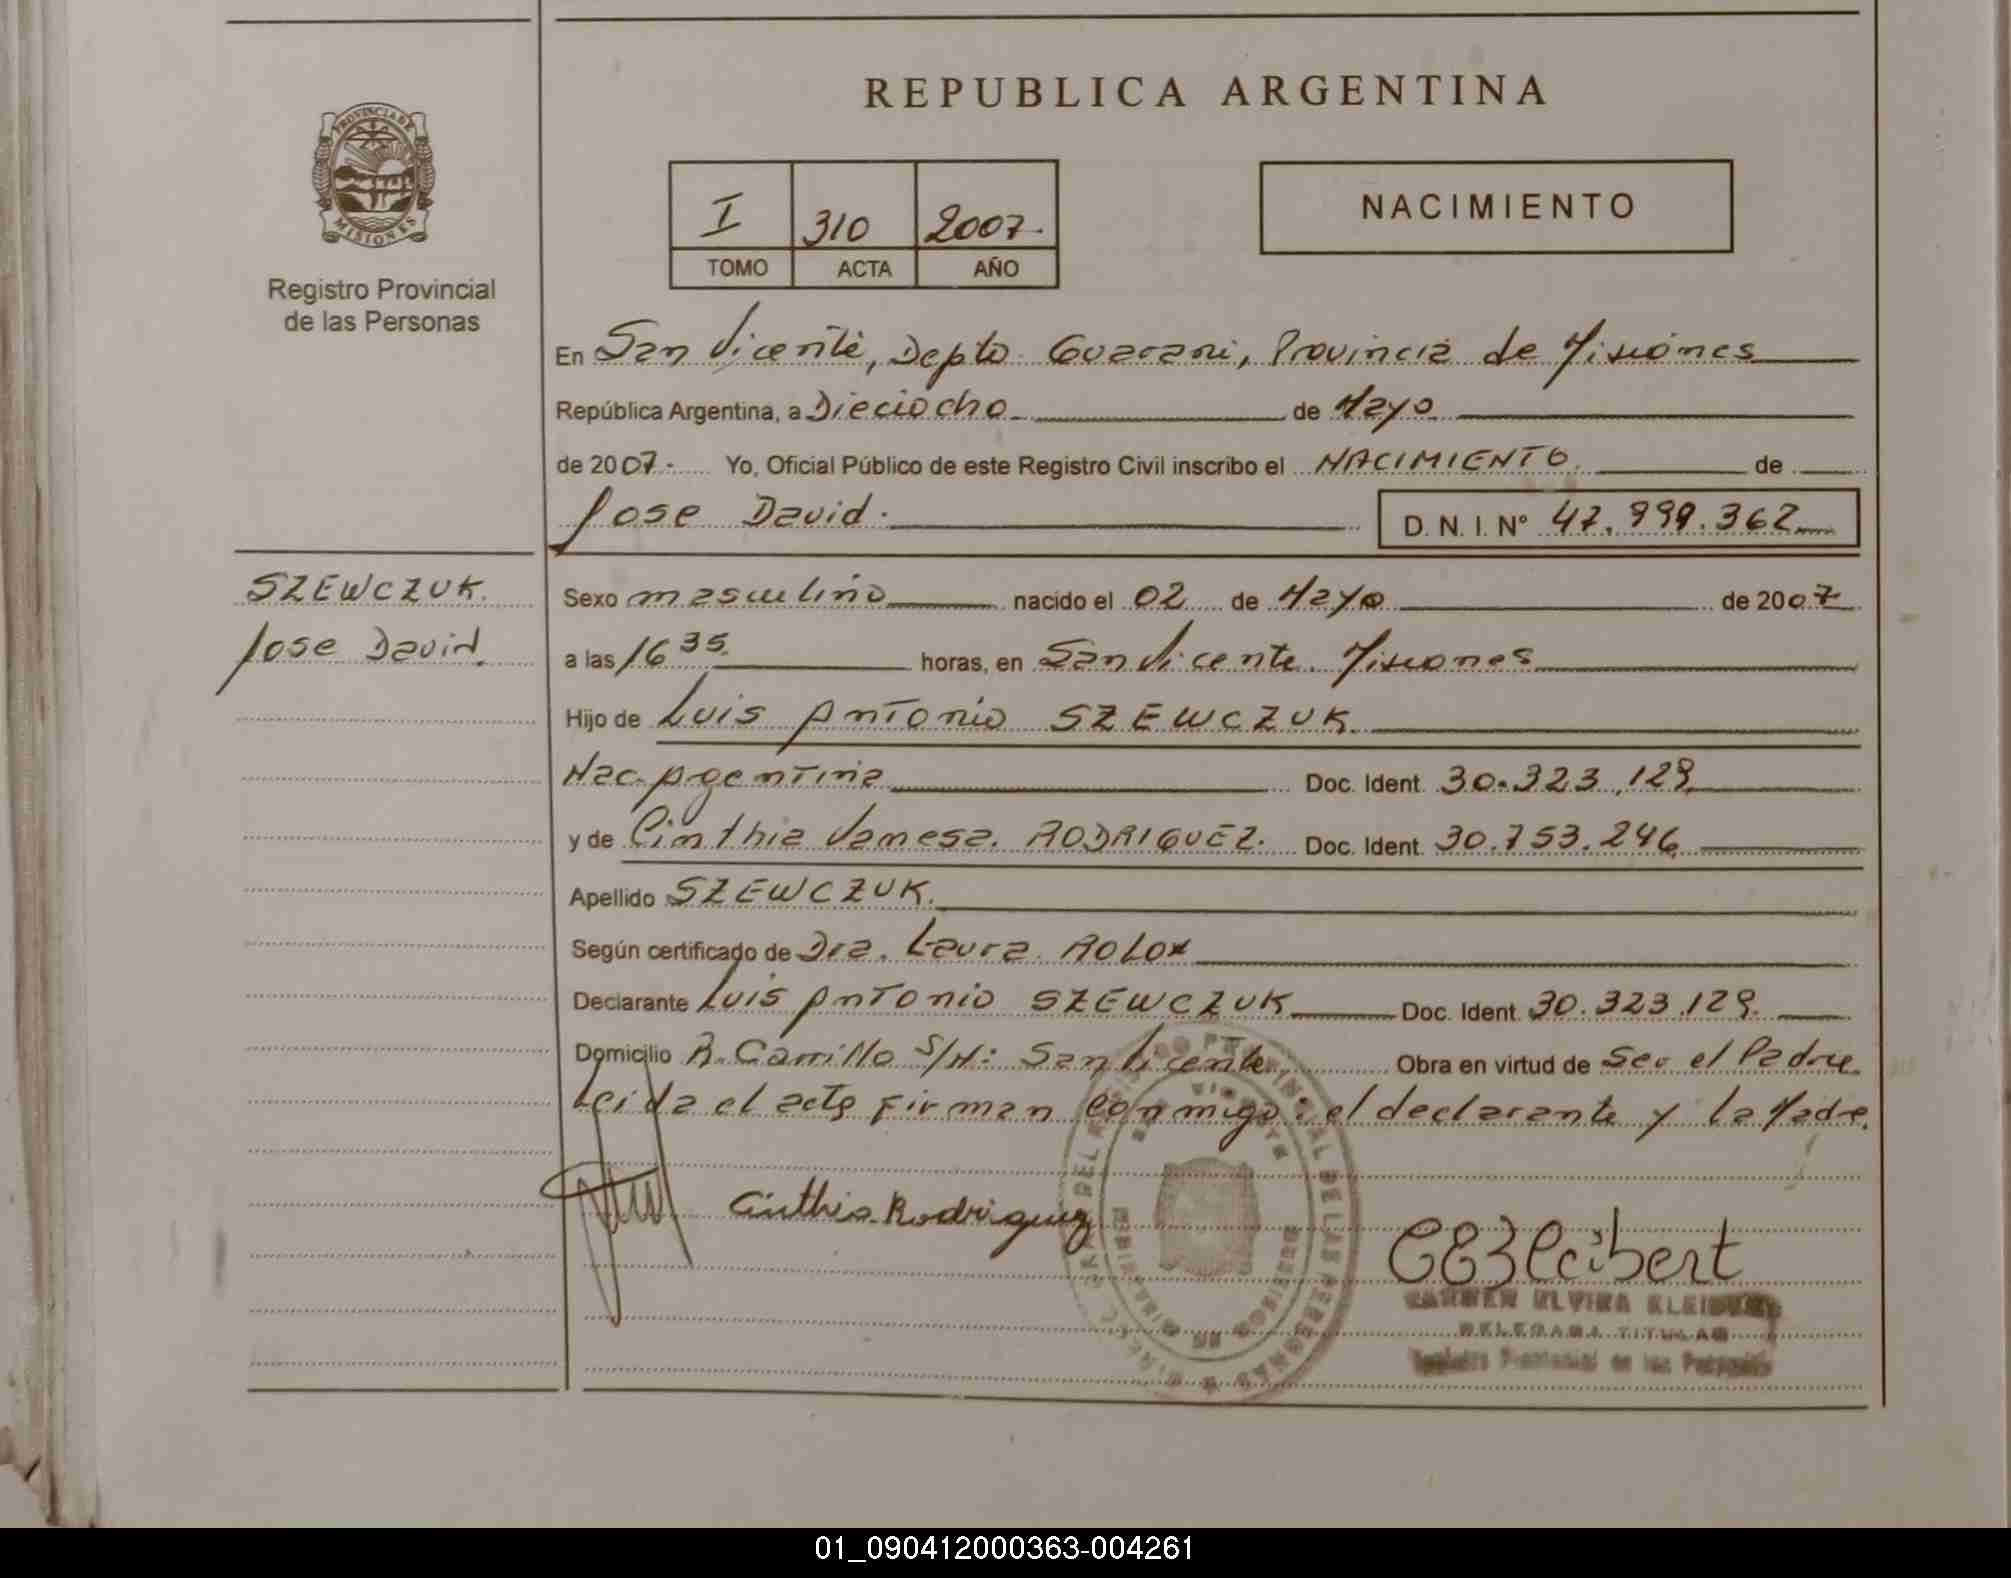 REPUBLICA ARGENTINA
PROVINCIA DE
MISIONES
Registro Provincial
de las Personas
I 310 2007.
TOMO ACTA AÑO
NACIMIENTO
En San Vicente, Depto Guarani, Provincia de Misiones
República Argentina, a Dieciocho de Mayo
de 2007. Yo, Oficial Público de este Registro Civil inscribo el NACIMIENTO. de
Jose David. D. N. I. Nº 47.999.362
SZEWCZUK.
Jose David.
Sexo masculino nacido el 02 de Mayo de 2007
a las 16 35 horas, en San Vicente. Misiones
Hijo de Luis Antonio SZEWCZUK.
Nac. Argentina Doc. Ident. 30.323.129
y de Cinthia Vanesa. RODRIGUEZ. Doc. Ident. 30.753.246
Apellido SZEWCZUK.
Según certificado de Dra. Laura
Declarante Luis Antonio SZEWCZUK Doc. Ident. 30.323.129.
Domicilio R. Carrillo S/N: San Vicente Obra en virtud de Ser el Padre.
Leida el acta firman conmigo: el declarante y la Madre.
Cinthia Rodriguez
CARMEN ELVIRA
DELEGADA TITULAR
Registro Provincial de las Personas
01_090412000363-004261